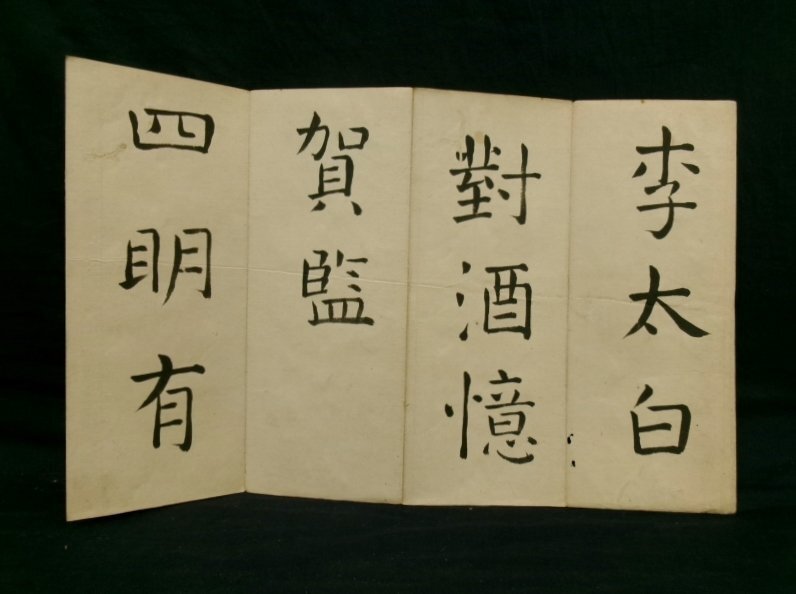 李太白
對酒憶
賀監
四明有